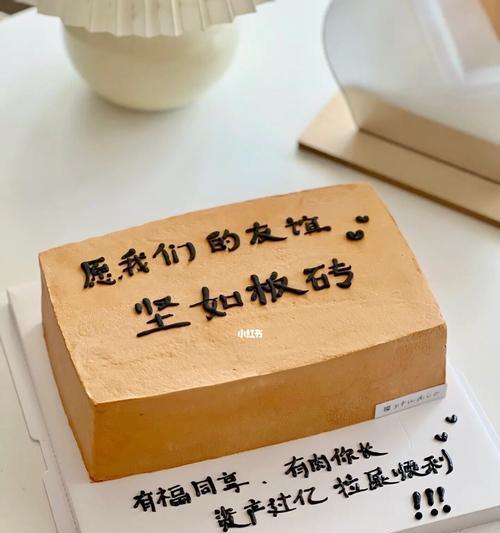 愿我们的友谊
坚如板砖
小红书
有福同享．有肉你长
资产过亿 拉屎顺利
!!!